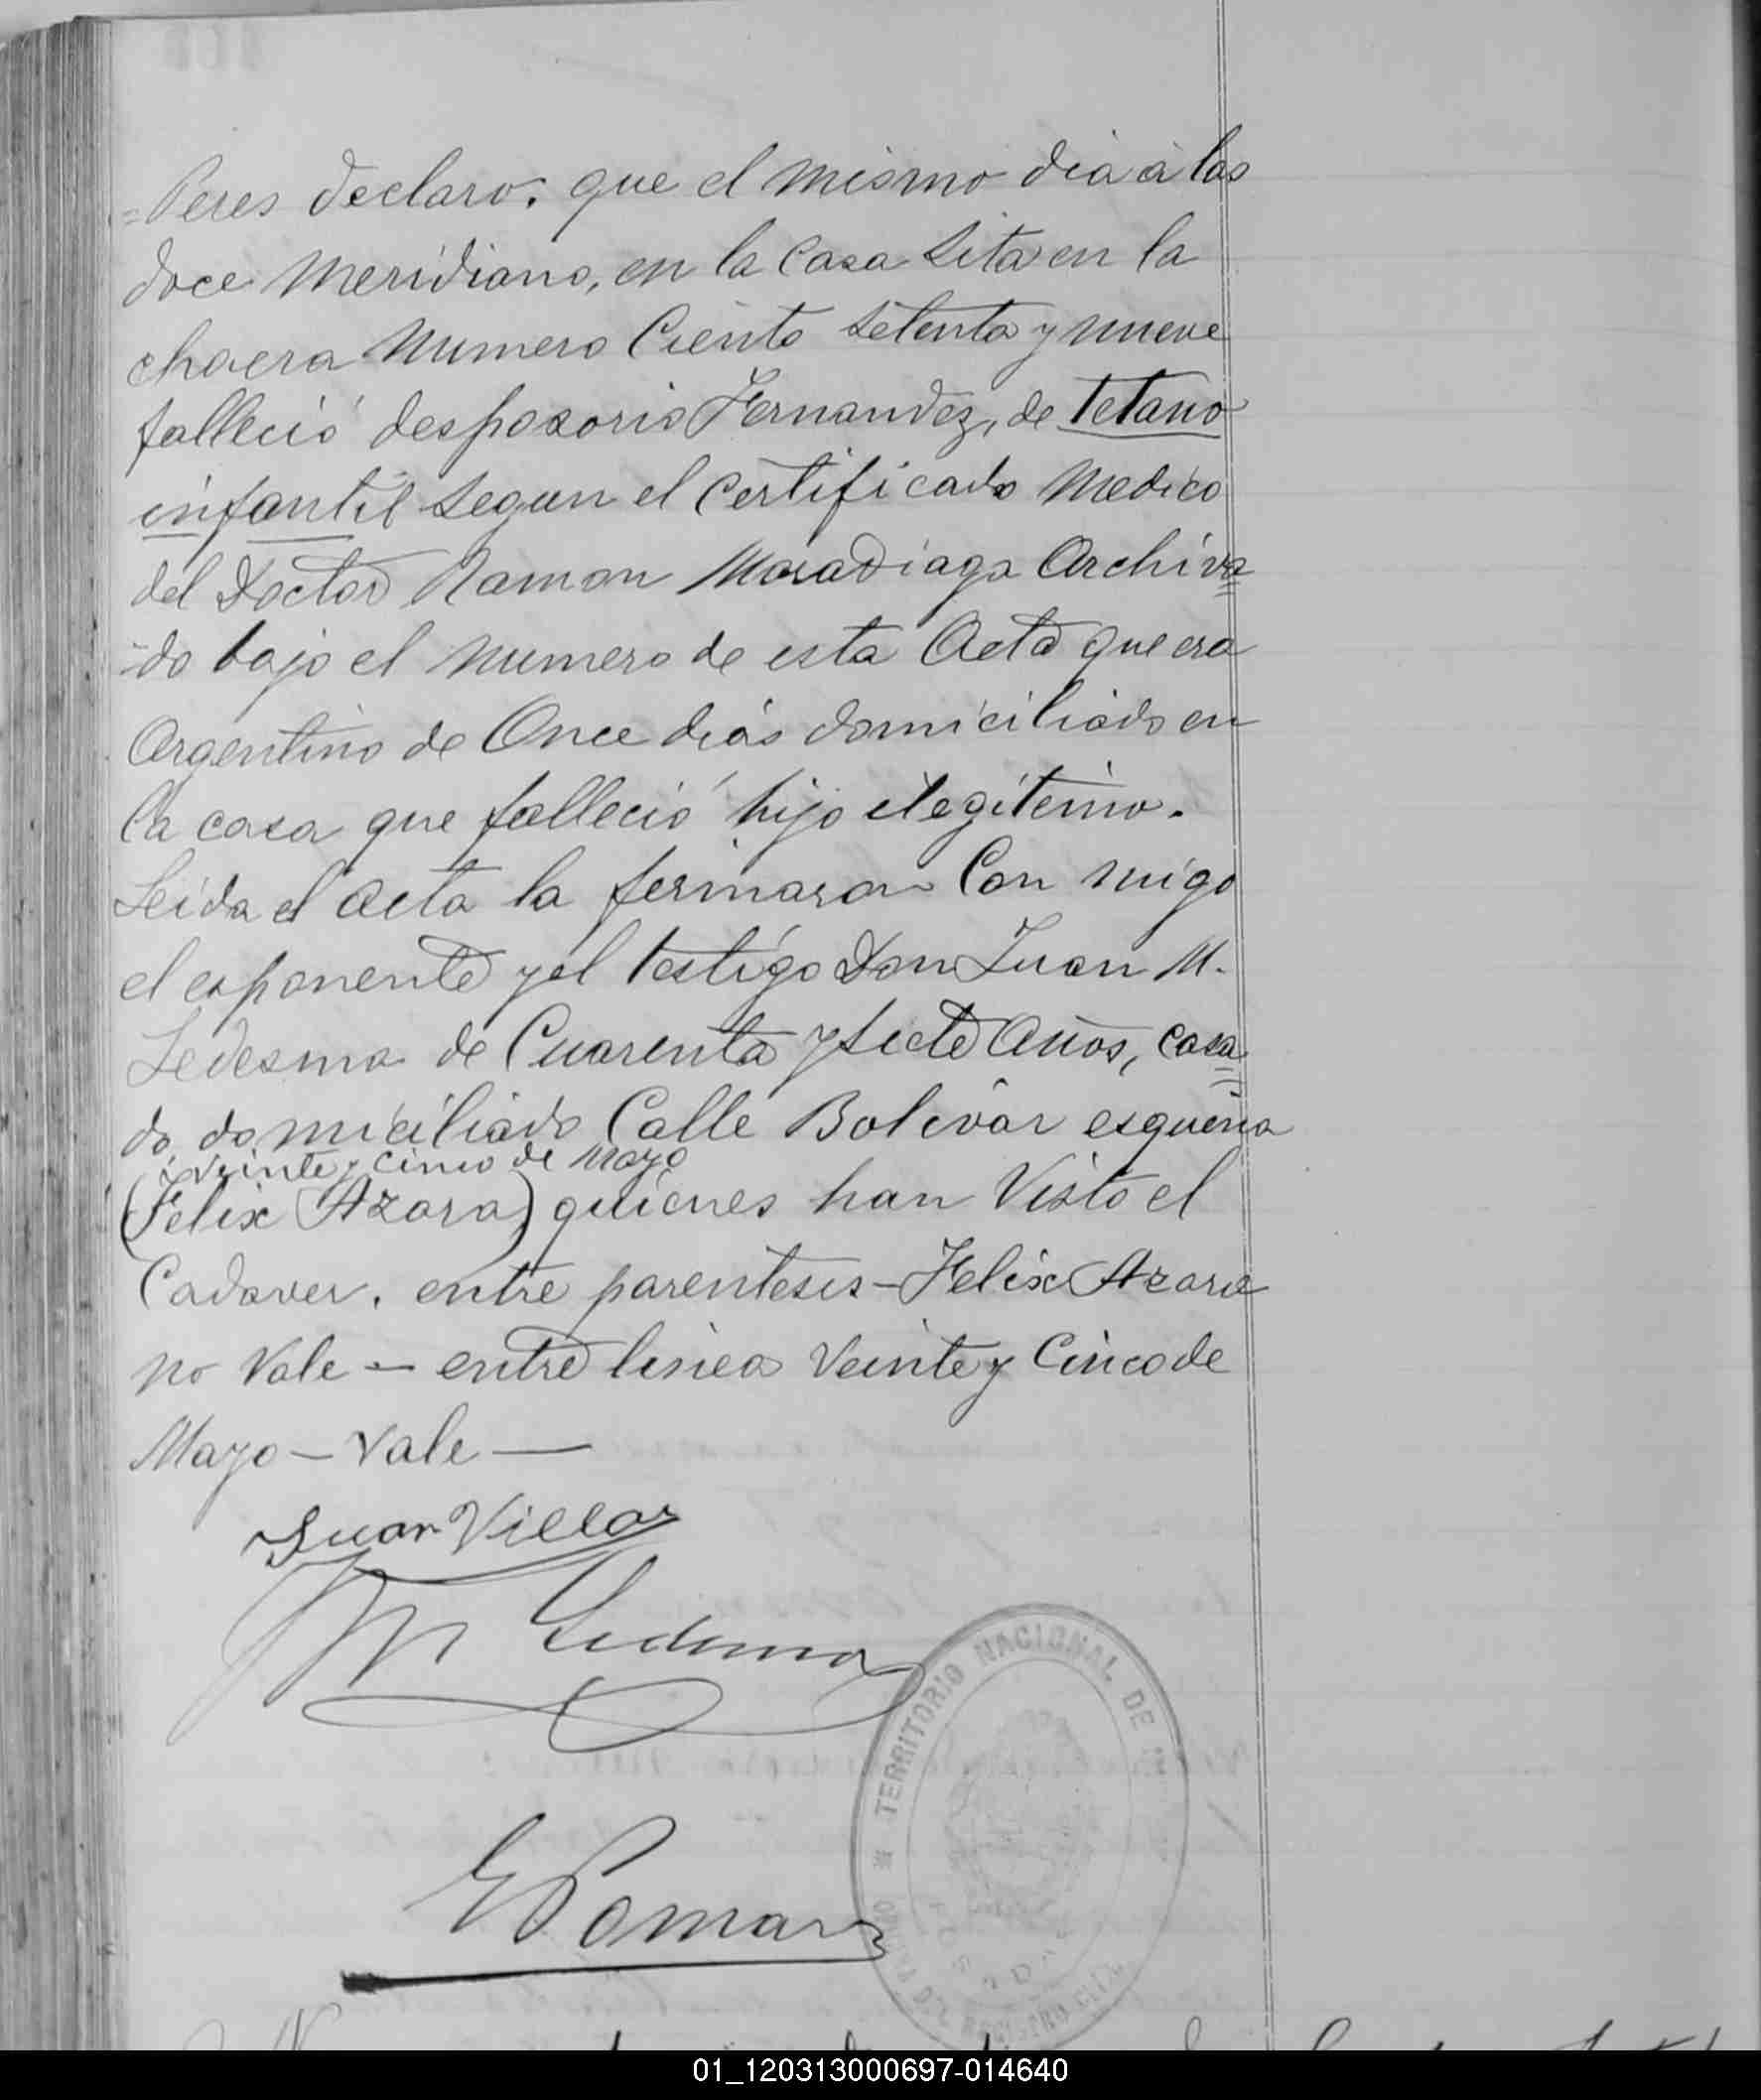 =Peres declaro: que el mismo dia á las
doce meridiano, en la Casa Sita en la
chacra numero Ciento setenta y nueve
falleció desposorio Fernandez, de tetano
infantil segun el Certificado Medico
del Doctor Ramon Moradiaga Archiva=
=do bajo el numero de esta Acta que era
Argentino de Once dias domiciliado en
la casa que falleció hijo ilegitimo.
Leida el Acta la firmaron Con migo
el esponente y el testigo Don Juan M.
Ledesma de Cuarenta y siete Años, casa=
do, domiciliado Calle Bolivar esquina
veinte y cinco de Mayo
(Felix Azara) quienes han Visto el
Cadaver. entre parentesis - Felix Azara
no Vale - entre linea Veinte y Cinco de
Mayo - Vale -
Juan Villar
M Ledesma
E Pomar
TERRITORIO NACIONAL DE
DEL REGISTRO CIVIL
POSADAS
01_120313000697-014640